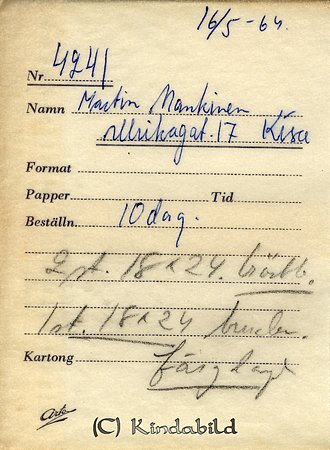 16/5-64.
Nr 4241
Namn Martin Mankinen
Ulrikagat. 17 Kisa
Format
Papper Tid
Beställn. 10 dag.
2 st. 18x24.
1 st. 18x24 bruden.
Kartong färglagt
Ark
(C) Kindabild